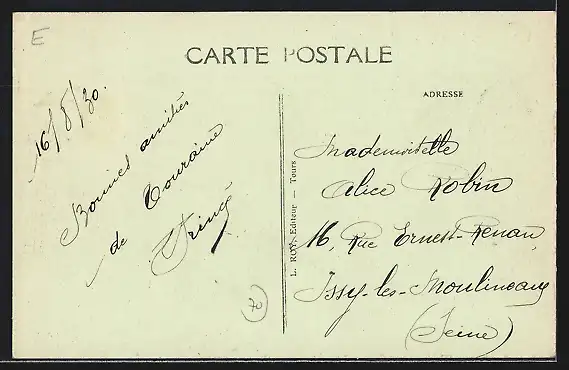 E
CARTE POSTALE
ADRESSE
16/8/30.
Bonnes amitiés
de Touraine
L. ROY, Editeur - Tours
Mademoiselle
Alice Robin
16, Rue Ernest-Renan,
Issy-les-Moulineaux
(Seine)